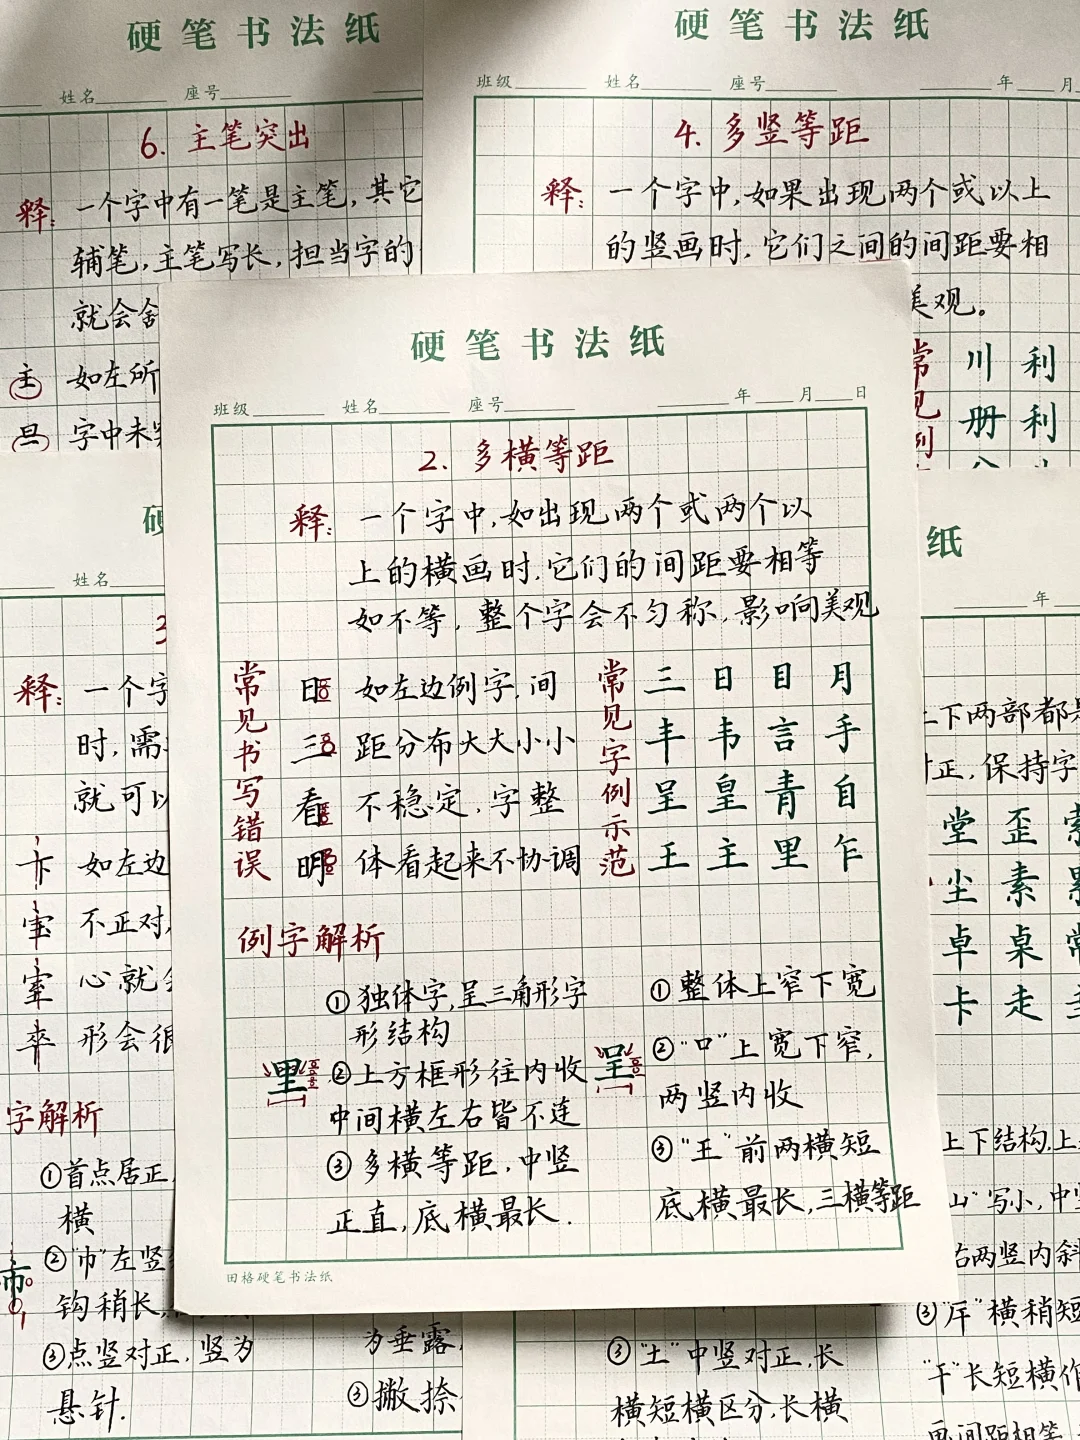 硬笔书法纸
姓名 座号
6. 主笔突出
释: 一个字中有一笔是主笔,其它
辅笔,主笔写长,担当字的
就会舍
主 如左所
旦 字中未突
硬笔书法纸
班级 姓名 座号 年 月
4. 多竖等距
释: 一个字中,如果出现两个或以上
的竖画时,它们之间的间距要相
美观。
常见例
川 利
册 利
硬笔书法纸
班级 姓名 座号 年 月 日
2. 多横等距
释: 一个字中,如出现两个或两个以
上的横画时,它们的间距要相等
如不等,整个字会不匀称,影响美观
常见书写错误
日 如左边例字,间
三 距分布大大小小
看 不稳定,字整
明 体看起来不协调
常见字例示范
三 日 目 月
丰 韦 言 手
呈 皇 青 自
王 主 里 乍
例字解析
里
①独体字,呈三角形字
形结构
②上方框形往内收
中间横左右皆不连
③多横等距,中竖
正直,底横最长.
呈
①整体上窄下宽
②"口"上宽下窄,
两竖内收
③"王"前两横短
底横最长,三横等距
田格硬笔书法纸
硬
姓名
3
释: 一个字
时,需
就可以
卞 如左边
不正对,
心就会
形会很
字解析
①首点居正,
横
市
②"巾"左竖
钩稍长,
③点竖对正,竖为
悬针.
为垂露,
③撇捺
纸
年
上下两部都是
对正,保持字
堂 歪 索
尘 素 累
卓 桌 常
卡 走 圭
上下结构,上
"山"写小,中竖
右两竖内斜
③"厈"横稍短
"干"长短横作
间距相等
③"土"中竖对正,长
横短横区分,长横